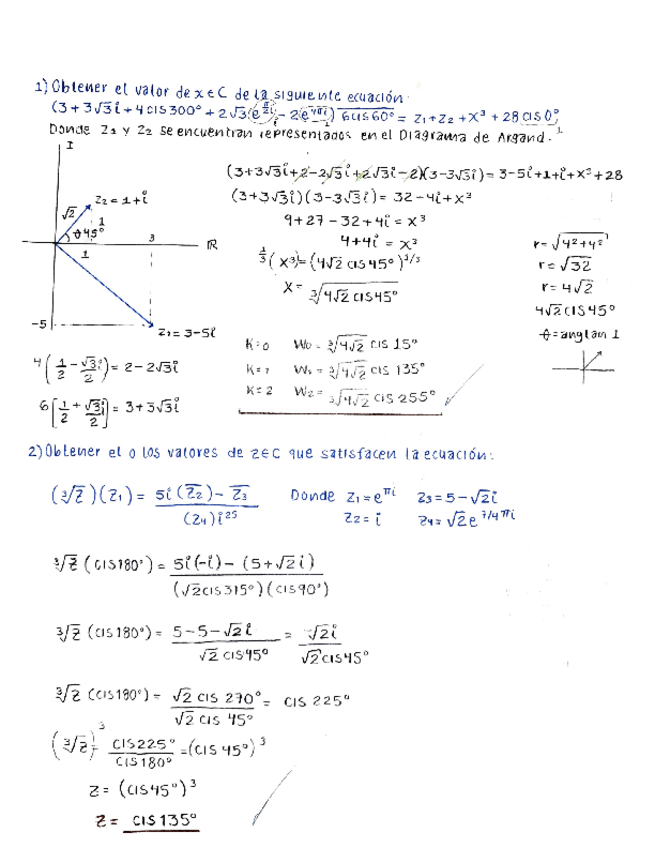 1) Obtener el valor de x ∈ C de la siguiente ecuación.
(3+3√3i + 4cis300° + 2√3(e^(π/2 i)) - 2(e^(4πi))) \overline{6cis60°} = z₁+z₂+x³+28cis0°
Donde z₁ y z₂ se encuentran representados en el Diagrama de Argand.
I
(3+3√3i+2-2√3i+2√3i-2)(3-3√3i) = 3-5i+1+i+x³+28
z₂=1+i
(3+3√3i)(3-3√3i) = 32-4i+x³
√2
9+27-32+4i = x³
θ45° 1
3
IR
4+4i = x³
r=√(4²+4²)
1
1/3 (x³)=(4√2 cis45°)^(1/3)
r=√32
x= ³√(4√2 cis45°)
r=4√2
4√2cis45°
-5
z₁=3-5i
K=0 W₀= ³√(4√2) cis 15°
θ=angtan 1
4(1/2 - √3i/2) = 2-2√3i
K=1 W₁= ³√(4√2) cis 135°
K=2 W₂= ³√(4√2) cis 255°
6[1/2 + √3i/2] = 3+3√3i
2) Obtener el o los valores de z∈C que satisfacen la ecuación:
(³√z)(z₁) = (5i(\overline{z₂}) - \overline{z₃}) / ((z₄)i²⁵) Donde z₁=e^(πi) z₃=5-√2i
z₂=i z₄=√2e^(7/4πi)
³√z (cis180°) = (5i(-i) - (5+√2i)) / ((√2cis315°)(cis90°))
³√z (cis180°) = (5-5-√2i) / (√2 cis45°) = -√2i / (√2cis45°)
³√z (cis180°) = (√2 cis 270°) / (√2 cis 45°) = cis 225°
(³√z)³ = cis225° / cis180° = (cis 45°)³
z = (cis45°)³
z = cis135°